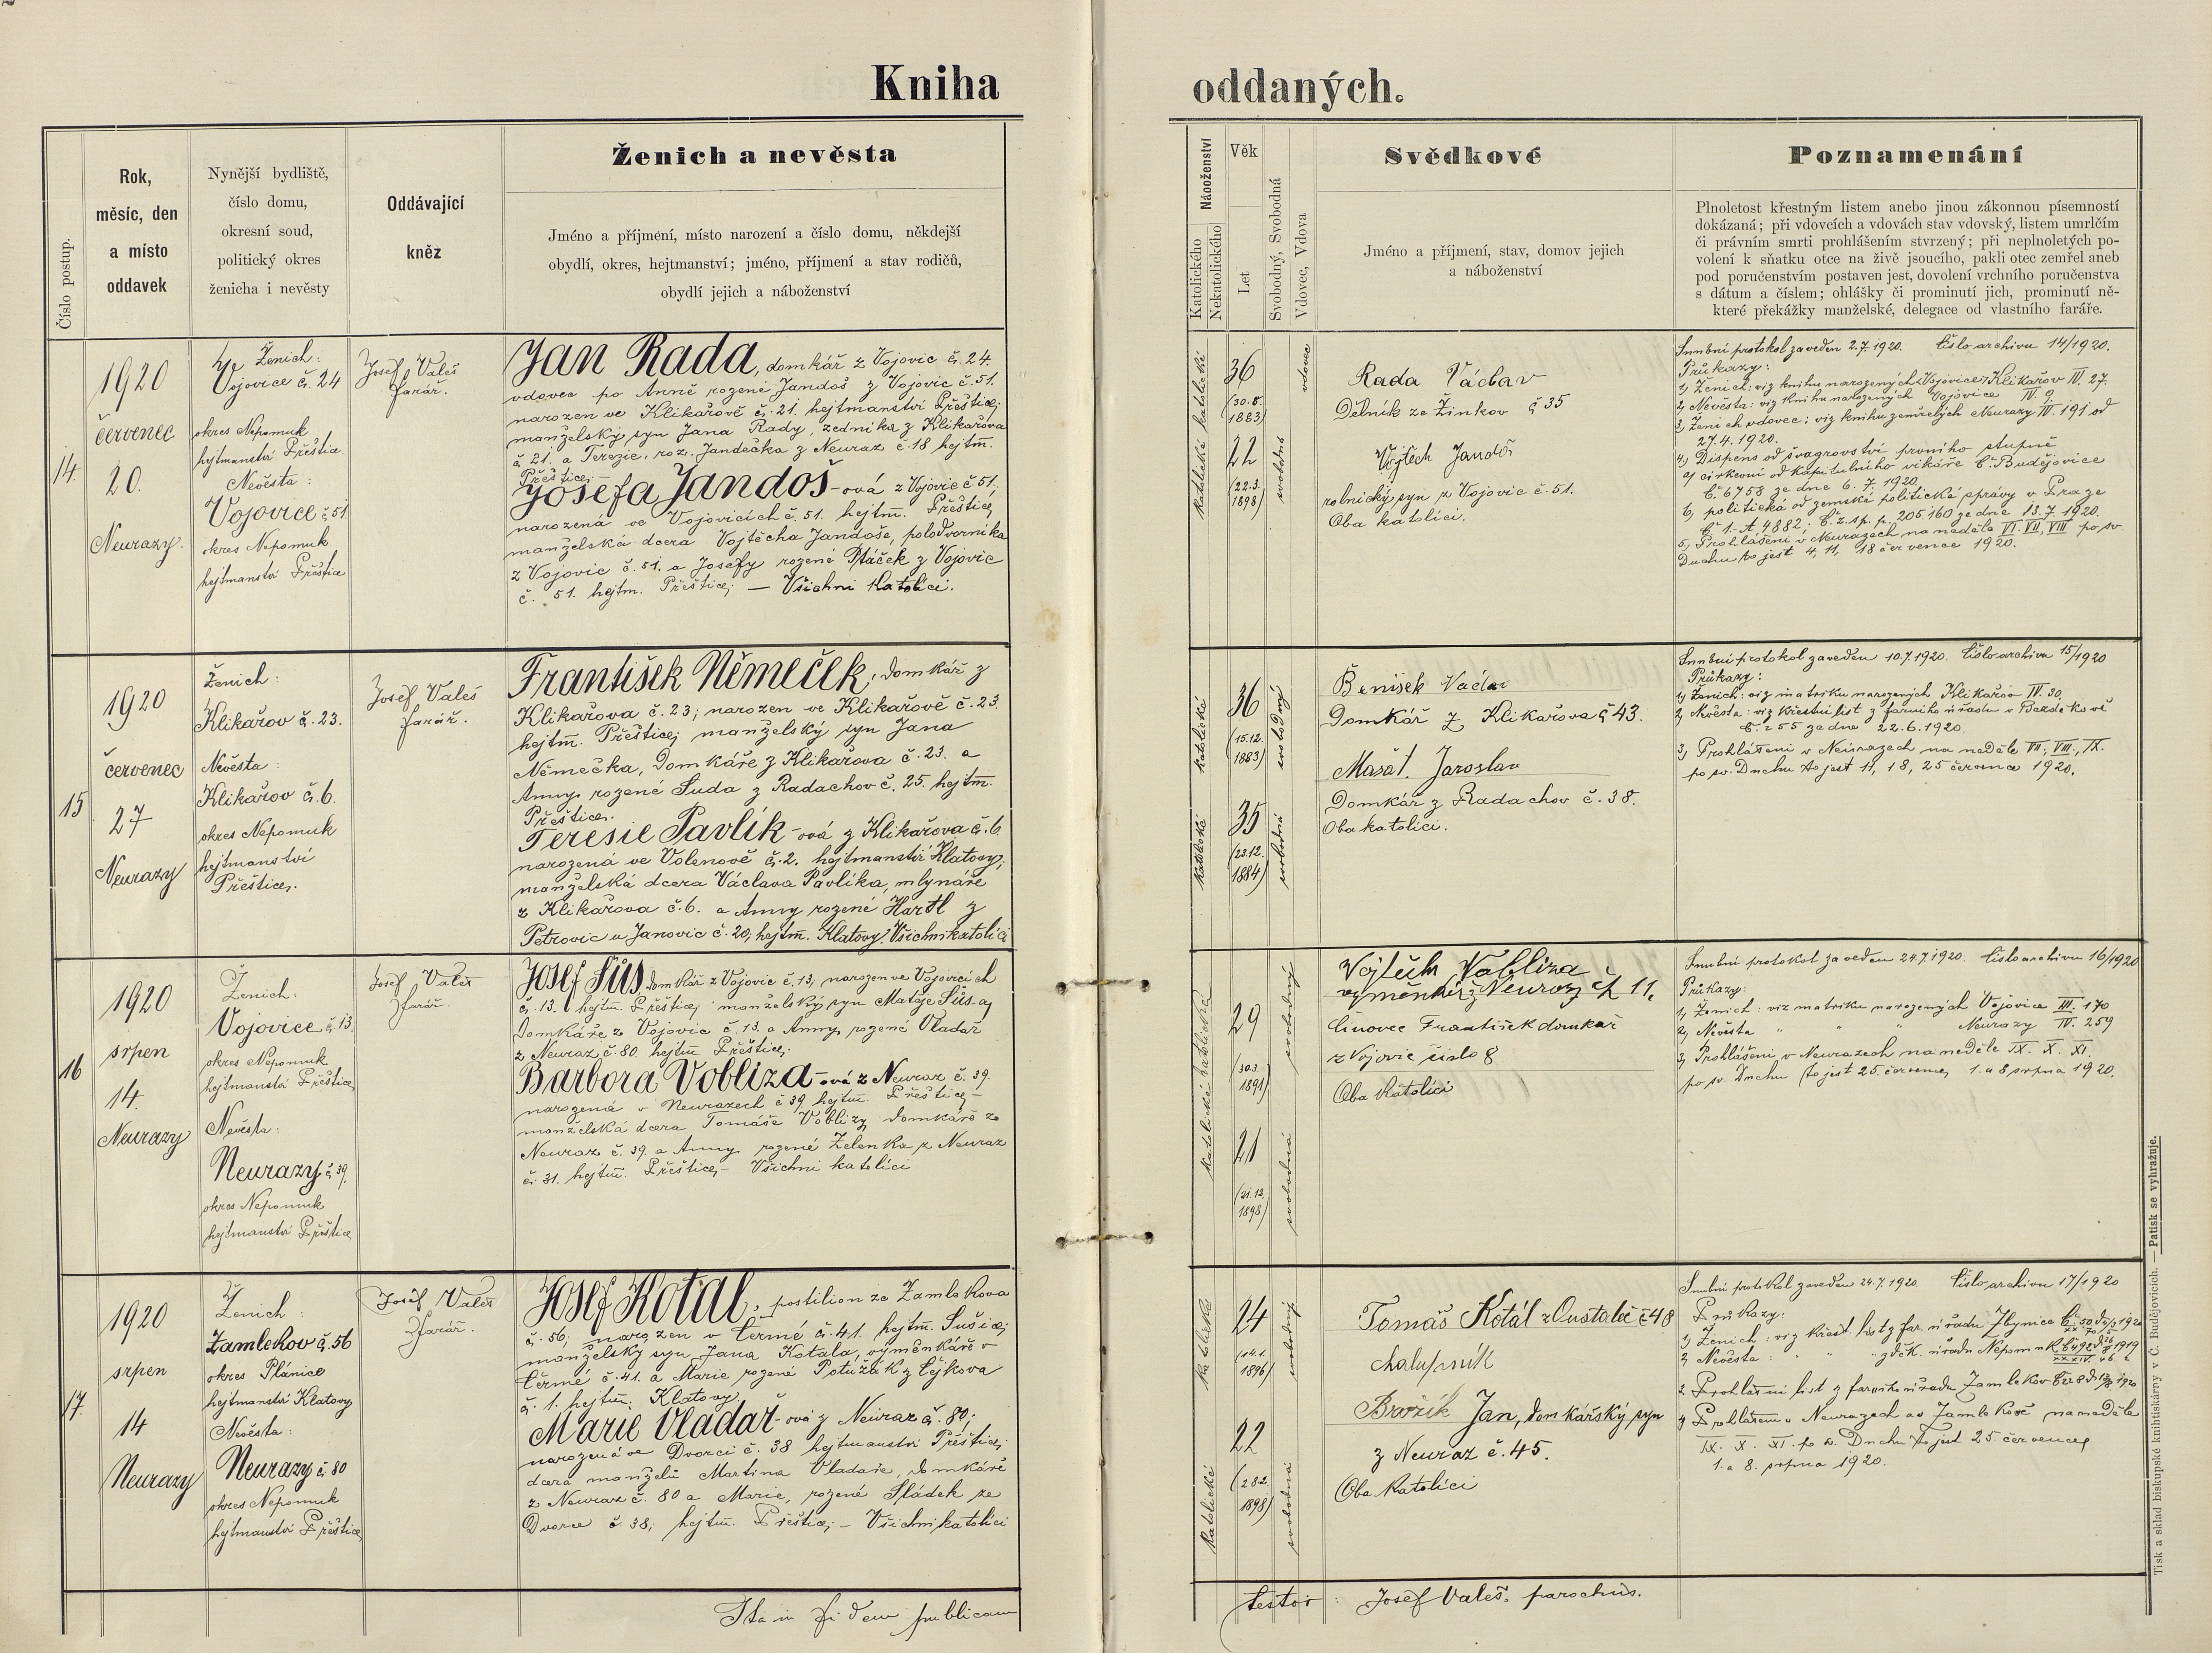 Kniha
oddaných.
Číslo postup.
Rok,
měsíc, den
a místo
oddavek
Nynější bydliště,
číslo domu,
okresní soud,
politický okres
ženicha i nevěsty
Oddávající
kněz
Ženich a nevěsta
Jméno a příjmení, místo narození a číslo domu, někdejší
obydlí, okres, hejtmanství; jméno, příjmení a stav rodičů,
obydlí jejich a náboženství
Náboženství
Katolického
Nekatolického
Věk
Let
Svobodný, Svobodná
Vdovec, Vdova
Svědkové
Jméno a příjmení, stav, domov jejich
a náboženství
Poznamenání
Plnoletost křestným listem anebo jinou zákonnou písemností
dokázaná; při vdovcích a vdovách stav vdovský, listem umrlčím
či právním smrti prohlášením stvrzený; při neplnoletých po-
volení k sňatku otce na živě jsoucího, pakli otec zemřel aneb
pod poručenstvím postaven jest, dovolení vrchního poručenstva
s dátum a číslem; ohlášky či prominutí jich, prominutí ně-
které překážky manželské, delegace od vlastního faráře.
14.
1920
červenec
20.
Neurazy.
Ženich:
Vojovice č. 24
okres Nepomuk
hejtmanství Přeštice
Nevěsta:
Vojovice č. 51
okres Nepomuk
hejtmanství Přeštice
Josef Valeš
farář.
Jan Rada, domkář z Vojovic č. 24.
vdovec po Anně rozené Jandoš z Vojovic č. 51.
narozen ve Klikařově č. 21. hejtmanství Přeštice;
manželský syn Jana Rady, zedníka z Klikařova
č. 21. a Terezie, roz. Jandečka z Neuraz č. 18 hejtm.
Přeštice;
Josefa Jandoš-ová z Vojovic č. 51;
narozená ve Vojovicích č. 51. hejtm. Přeštice,
manželská dcera Vojtěcha Jandoše, polodvorníka
z Vojovic č. 51. a Josefy rozené Ptáček z Vojovic
č. 51. hejtm. Přeštice; — Všichni Katolíci.
katolické katolické
36
(30.8.
1883)
22
(22.3.
1898)
vdovec
svobodná
Rada Václav
Dělník ze Žinkov č 35
Vojtěch Jandoš
rolnický syn z Vojovic č. 51.
Oba katolíci.
Snubní protokol zaveden 2.7.1920. Číslo archivu 14/1920.
Průkazy:
1) Ženich: viz knihu narozených Vojovice, Klikařov IV. 27.
2) Nevěsta: viz knihu narozených Vojovice IV. 9.
3) Ženich vdovec; viz knihu zemřelých Neurazy IV. 191 od
27.4.1920.
4) Dispens od švagrovství prvního stupně
a) církevní od kapitulního vikáře Č. Budějovice
č. 6758 ze dne 6. 7. 1920.
b) politická od zemské politické správy v Praze
Č. 1.-A. 4882; č. z. sp. p. 205160 ze dne 13.7.1920.
5) Prohlášení v Neurazech na neděle VI. VII. VIII. po sv.
Duchu to jest 4, 11, 18 července 1920.
15
1920
červenec
27
Neurazy
Ženich:
Klikařov č. 23.
Nevěsta:
Klikařov č. 6.
okres Nepomuk
hejtmanství
Přeštice.
Josef Valeš
farář.
František Němeček, domkář z
Klikařova č. 23; narozen ve Klikařově č. 23
hejtm. Přeštice; manželský syn Jana
Němečka, Domkáře z Klikařova č. 23. a
Anny rozené Suda z Radachov č. 25. hejtm.
Přeštice.
Teresie Pavlík-ová z Klikařova č. 6.
narozená ve Volenově č. 2. hejtmanství Klatovy;
manželská dcera Václava Pavlíka, mlynáře
z Klikařova č. 6. a Anny rozené Hartl z
Petrovic u Janovic č. 20; hejtm. Klatovy. Všichni katolíci
katolické
katolické
36
(15.12.
1883)
35
(23.12.
1884)
svobodný
svobodná
Benisek Václav
Domkář z Klikařova č 43.
Mašát. Jaroslav
Domkář z Radachov č. 38.
Oba katolíci.
Snubní protokol zaveden 10.7.1920. Číslo archivu 15/1920
Průkazy:
1) Ženich: viz matriku narozených Klikařov IV. 30.
2) Nevěsta: viz křestní list z farního úřadu v Bezděkově
č. 255 ze dne 22.6.1920.
3) Prohlášení v Neurazech na neděle VII., VIII., IX.
po sv. Duchu to jest 11, 18, 25 července 1920.
16
1920
srpen
14.
Neurazy
Ženich:
Vojovice č. 13.
okres Nepomuk
hejtmanství Přeštice
Nevěsta:
Neurazy č. 39.
okres Nepomuk
hejtmanství Přeštice
Josef Valeš
farář.
Josef Šůs domkář z Vojovic č. 13, narozen ve Vojovicích
č. 13. hejtm. Přeštice; manželský syn Matěje Šůs a
Domkáře z Vojovic č. 13. a Anny rozené Vladař
z Neuraz č. 80. hejtm. Přeštice;
Barbora Vobliza-ová z Neuraz č. 39.
narozená v Neurazech č 39 hejtm. Přeštice,-
manželská dcera Tomáše Voblizy domkáře z
Neuraz č. 39 a Anny rozené Zelenka z Neuraz
č. 31. hejtm. Přeštice,- Všichni katolíci
katolické katolické
29
(30.3.
1891)
21
(21.12.
1898)
svobodný
svobodná
Vojtěch Vobliza
výměnkář z Neuraz čp 11.
Činovec František domkář
z Vojovic číslo 8
Oba Katolíci
Snubní protokol zaveden 24.7.1920. Číslo archivu 16/1920
Průkazy:
1) Ženich: viz matriku narozených Vojovice III. 170
2) Nevěsta " " " Neurazy IV. 259
3) Prohlášení v Neurazech na neděle IX. X. XI.
po sv. Duchu (to jest 25. července, 1. a 8 srpna 1920.
17.
1920
srpen
14
Neurazy
Ženich:
Žamlekov č. 56
okres Plánice
hejtmanství Klatovy
Nevěsta:
Neurazy č. 80
okres Nepomuk
hejtmanství Přeštice
Josef Valeš
farář.
Josef Kotál, postilion ze Žamlekova
č. 56; narozen v Čermé č. 41. hejtm. Sušice;
manželský syn Jana Kotala, výměnkáře v
Čermé č. 41. a Marie rozené Potužák z Čejkova
č. 1. hejtm. Klatovy.
Marie Vladař-ová z Neuraz č. 80;
narozená ve Dvorci č. 38 hejtmanství Přeštice;
dcera manželů Martina Vladaře, domkáře
z Neuraz č. 80 a Marie, rozené Sládek ze
Dvorce č. 38; hejtm. Přeštice; - Všichni katolíci
katolické
katolické
24
1896)
22
(28.2.
1898)
svobodný
svobodná
Tomáš Kotál č 48
chalupník
Jan, domkářský syn
z Neuraz č. 45.
Oba Katolíci
Snubní protokol zaveden 24.7.1920. Číslo archivu 17/1920
Průkazy:
1) Ženich: viz křest. list z far. úřadu Zbynice
2) Nevěsta: " " z děk. úřadu Nepomuk
3. Prohlášní list z farního úřadu Žamlekov
4 Prohlášen v Neurazech a v Žamlekově na neděle
IX. X. XI. po s. Duchu to jest 25. července,
1. a 8. srpna 1920.
Ita in fidem publicam
testor: Josef Valeš, parochus.
Tisk a sklad biskupské knihtiskárny v Č. Budějovicích. — Patisk se vyhražuje.